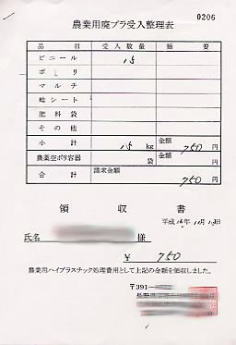 0206
農業用廃プラ受入整理表
品目 受入数量 摘要
ビニール 15
ポリ
マルチ
畦シート
肥料袋
その他
小計 15 kg 金額 750 円
農薬空ポリ容器 袋 金額 円
合計 請求金額 750 円
領収書
平成
氏名 様
¥ 750
農業用ハイプラスチック処理費用として上記の金額を領収しました。
〒391-